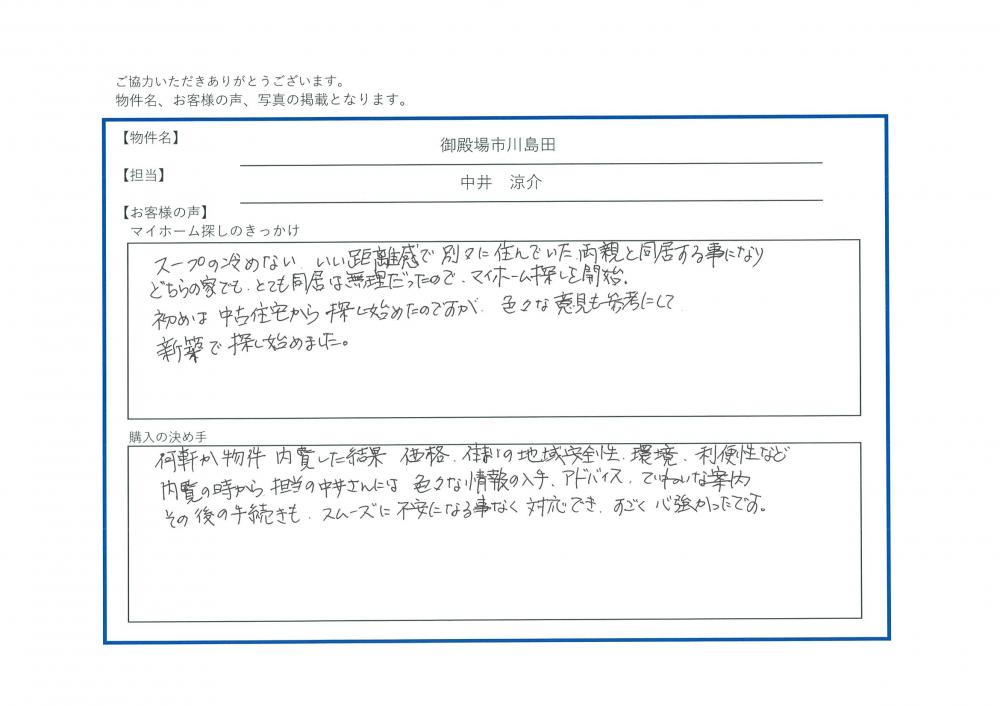 ご協力いただきありがとうございます。
物件名、お客様の声、写真の掲載となります。
【物件名】
御殿場市川島田
【担当】
中井 涼介
【お客様の声】
マイホーム探しのきっかけ
スープの冷めない、いい距離感で別々に住んでいた両親と同居する事になり
どちらの家でも、とても同居は無理だったので、マイホーム探しを開始。
初めは中古住宅から探し始めたのですが、色々な意見も参考にして
新築で探し始めました。
購入の決め手
何軒か物件内覧した結果 価格、の地域安全性、環境、利便性など
内覧の時から、担当の中井さんには色々な情報の入手、アドバイス、ていねいな案内
その後の手続きも、スムーズに不安になる事なく対応でき、すごく心強かったです。